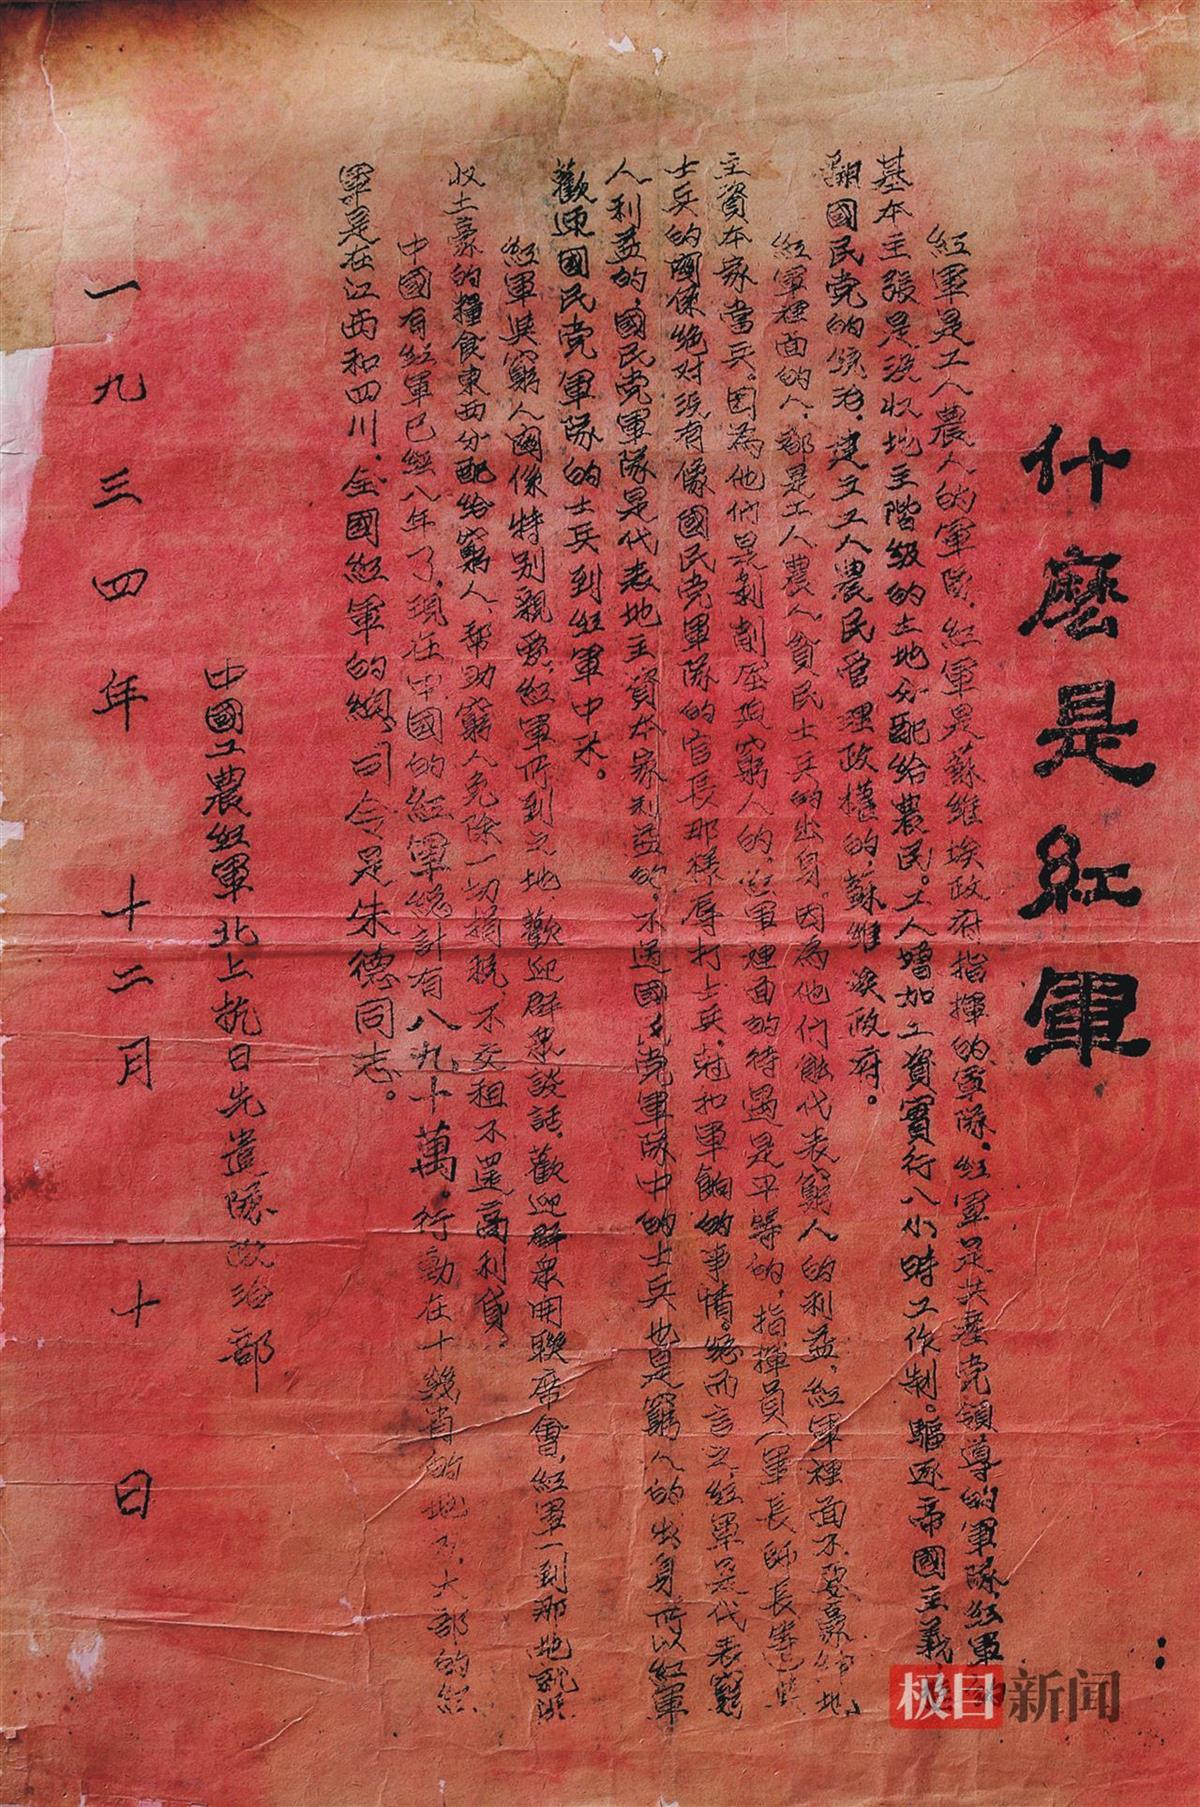 什麽是紅軍
紅軍是工人農人的軍隊，紅軍是蘇維埃政府指揮的軍隊，紅軍是共產党領導的軍隊，紅軍
基本主張是没收地主階級的土地分配給農民。工人增加工資實行八小時工作制。驅逐帝國主義，
翻國民党的統治，建立工人農民管理政權的，蘇維埃政府。
紅軍裡面的人，都是工人農人貧民士兵的出身，因為他們能代表窮人的利益，紅軍裡面不要豪紳地
主資本家當兵。因為他們是剝削壓迫窮人的，紅軍裡面的待遇是平等的，指揮員（軍長師長等）與
士兵的關係絶对没有像國民党軍隊的官長那樣，辱打士兵，尅扣軍餉的事情。總而言之紅軍是代表窮
人利益的，國民党軍隊是代表地主資本家利益的。不過國民党軍隊中的士兵也是窮人的出身所以紅軍
歡迎國民党軍隊的士兵到紅軍中來。
紅軍與窮人關係特别親愛，紅軍所到之地，歡迎群衆談話，歡迎群衆開聯席會，紅軍一到那地就没
收土豪的糧食東西分配給窮人，帮助窮人免除一切捐稅，不交租不還高利貸。
中國有紅軍已經八年了，現在中國的紅軍總計有八九十萬，行動在十幾省的地方，大部的紅
軍是在江西和四川，全國紅軍的總司令是朱德同志。
中國工農紅軍北上抗日先遣隊政治部
一九三四年十二月十日
极目新闻